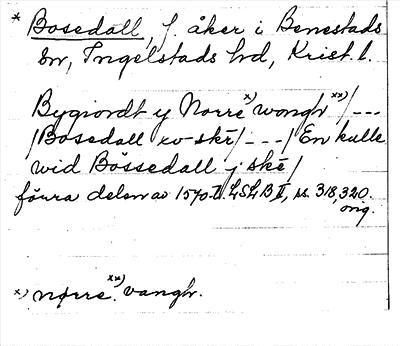 * Bosedall, f. åker i Benestads
sn, Ingelstads hd, Krist. l.
Bygiordt y Norre x) wongh xx) / ---
/ Bosedall xv-skē / - - - / En kulle
wid Bössedall j skē /
förra delen av 1570-t. LSLB II, ss. 318, 320.
orig.
x) nørre. xx) vangh.